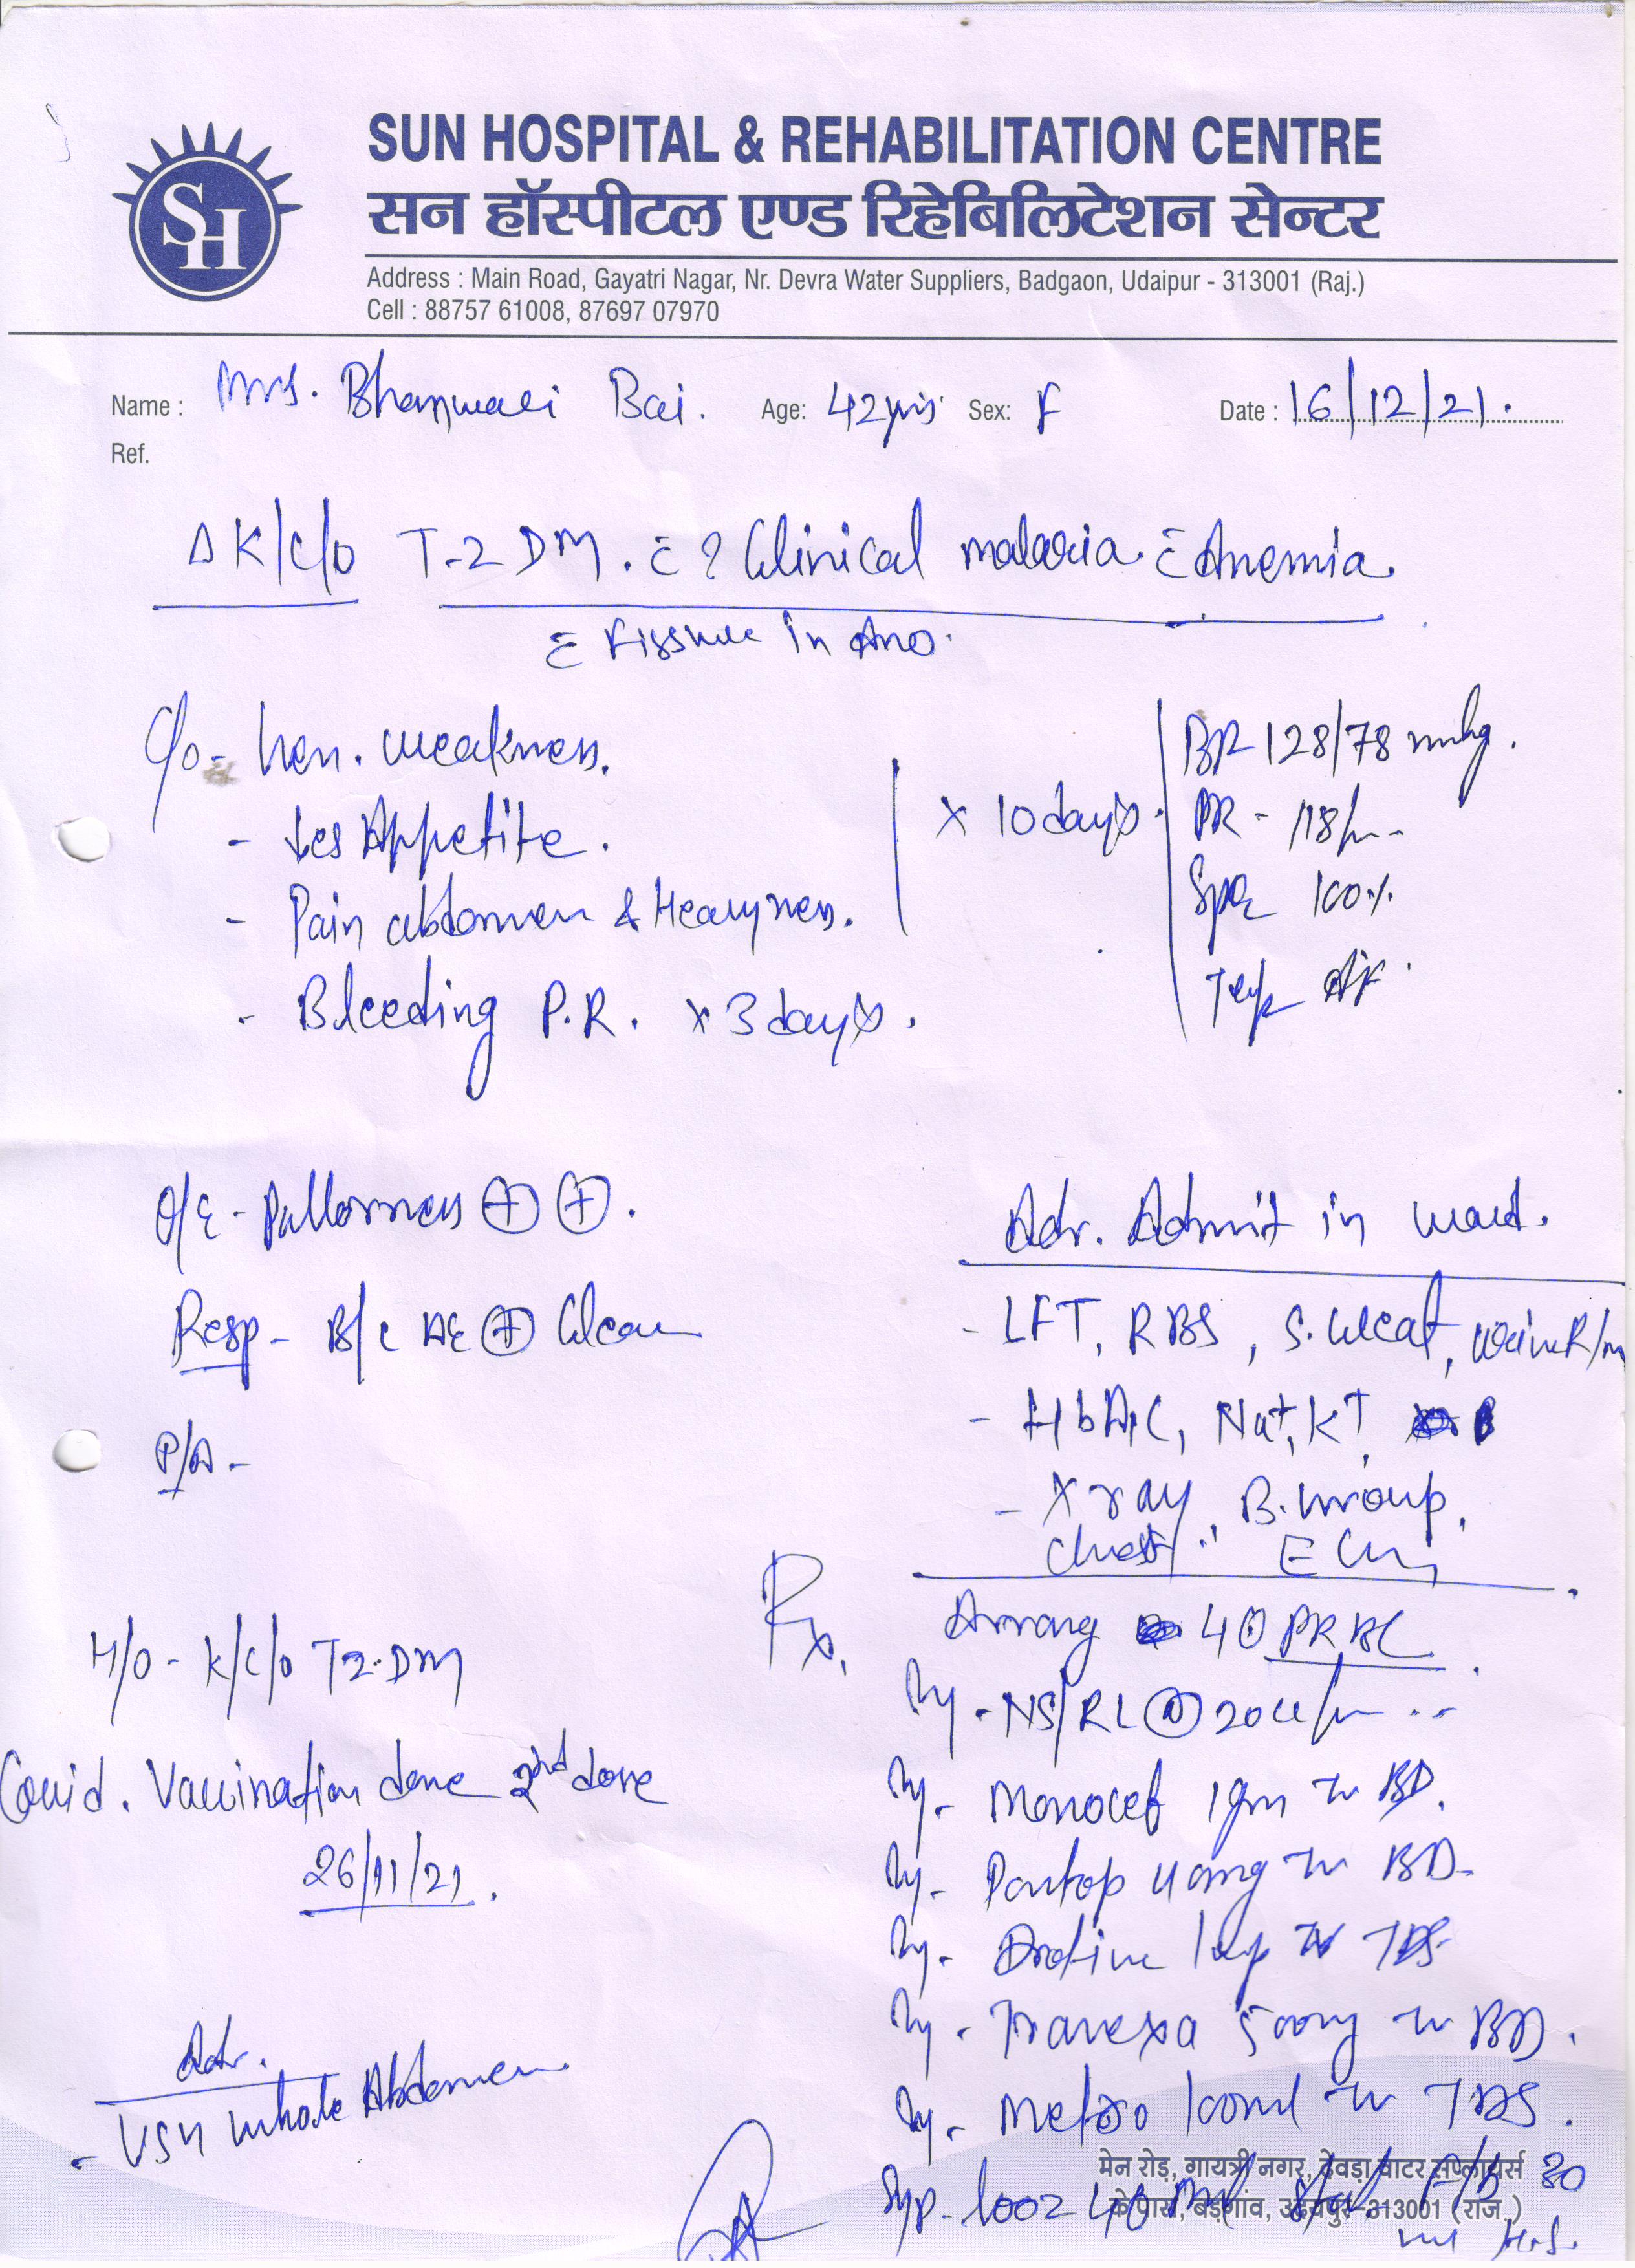 SUN HOSPITAL & REHABILITATION CENTRE
सन हॉस्पीटल एण्ड रिहेबिलिटेशन सेन्टर
SH
Address : Main Road, Gayatri Nagar, Nr. Devra Water Suppliers, Badgaon, Udaipur - 313001 (Raj.)
Cell : 88757 61008, 87697 07970
Name : Mrs. Bhanwari Bai. Age: 42yrs Sex: F Date : 16/12/21.
Ref.
Δ K/C/O T-2 DM. c̄ ? Clinical malaria c̄ Anemia.
c̄ Fissure in Ano.
C/o - Gen. weakness.
- ↓es Appetite.
- Pain abdomen & Heavyness.
x 10 days.
- Bleeding P.R. x 3 days.
BP 128/78 mmhg.
PR - 118/m
SpO2 100%
Temp A/F
O/E - Pallorness ⊕ ⊕.
Resp - B/L AE ⊕ Clear
P/A -
H/O - K/C/O T2-DM
Covid. Vaccination done 2nd dose
26/11/21.
Adv.
- USG Whole Abdomen
Adv. Admit in ward.
- LFT, RBS, S. Creat, Urine R/m
- HbA1C, Na+, K+,
- X ray, B. Group,
Chest ECG
Rx,
Arrang 4 PRBC.
Inj. NS/RL @ 20
Inj - Monocef 1gm IV BD.
Inj - Pantop 40mg IV BD-
Inj - Drotin 1amp IV TDS
Inj - Tranexa 500mg IV BD.
Inj - Metro 100ml IV TDS.
Syp - Looz 40 ml stat F/b 30
ml H.S.
मेन रोड़, गायत्री नगर, देवड़ा वाटर सप्लायर्स
के पास, बड़गांव, उदयपुर-313001 (राज.)